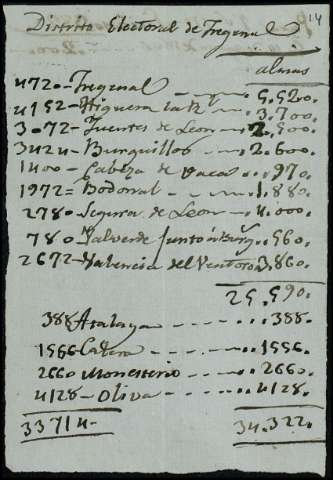 14
Distrito Electoral de Fregenal
almas
4720 - Fregenal - - - 5.520.
4152 - Higuera la R.l - - 3.700.
3072 - Fuentes de Leon - - 2.500
3424 - Burguillos - - - 2.600.
1400 - Cabeza de vaca - - 970.
1972 = Bodonal - - - 1.880.
2780 - Segura de Leon - - 4.000.
780 - Valverde junto á Burg.s - 560
2672 - Valencia del Ventoso 3.860.
25.590.
388 Atalaya - - - - - 388.
1566 Calera - - - - 1556.
2660 Monesterio - - - 2660.
4128 - Oliva - - - 4128.
33714. 34.322.